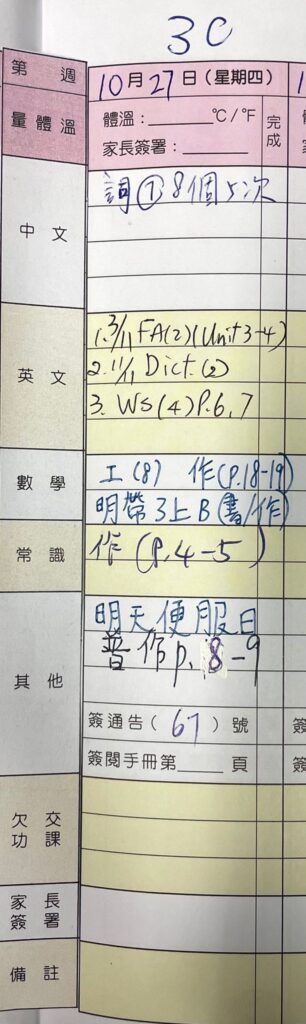 3C
第 週
10月27日(星期四)
量 體 溫
體溫：______℃/℉
家長簽署：______
完成
中 文
詞① 8個5次
英 文
1. 3/11 FA(2)(Unit 3-4)
2. 11/11 Dict. (2)
3. WS(4)P.6,7
數 學
工(8) 作(P.18-19)
明帶3上B(書/作)
常 識
作(P.4-5)
其 他
明天便服日
普作p.8-9
簽通告(67)號
簽閱手冊第____頁
欠 交
功 課
家 長
簽 署
備 註